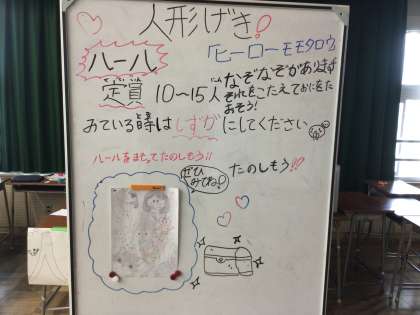 人形げき!
「ヒーローモモタロウ」
ルール
定員 10〜15人
なぞなぞがあります
それをこたえておにをた
おそう!
みている時はしずかにしてください
ルールをまもってたのしもう!!
ぜひみてね!
たのしもう!!